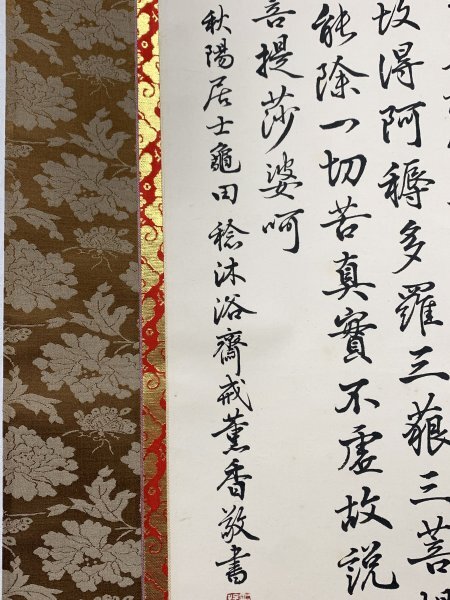 故得阿耨多羅三藐三菩
能除一切苦真實不虛故說
菩提莎婆呵
秋陽居士龜田稔沐浴齋戒薰香敬書